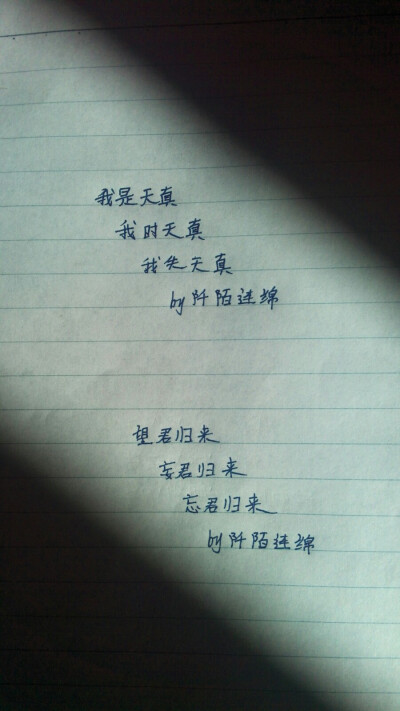 我是天真
我时天真
我失天真
by阡陌连绵
望君归来
妄君归来
忘君归来
by阡陌连绵